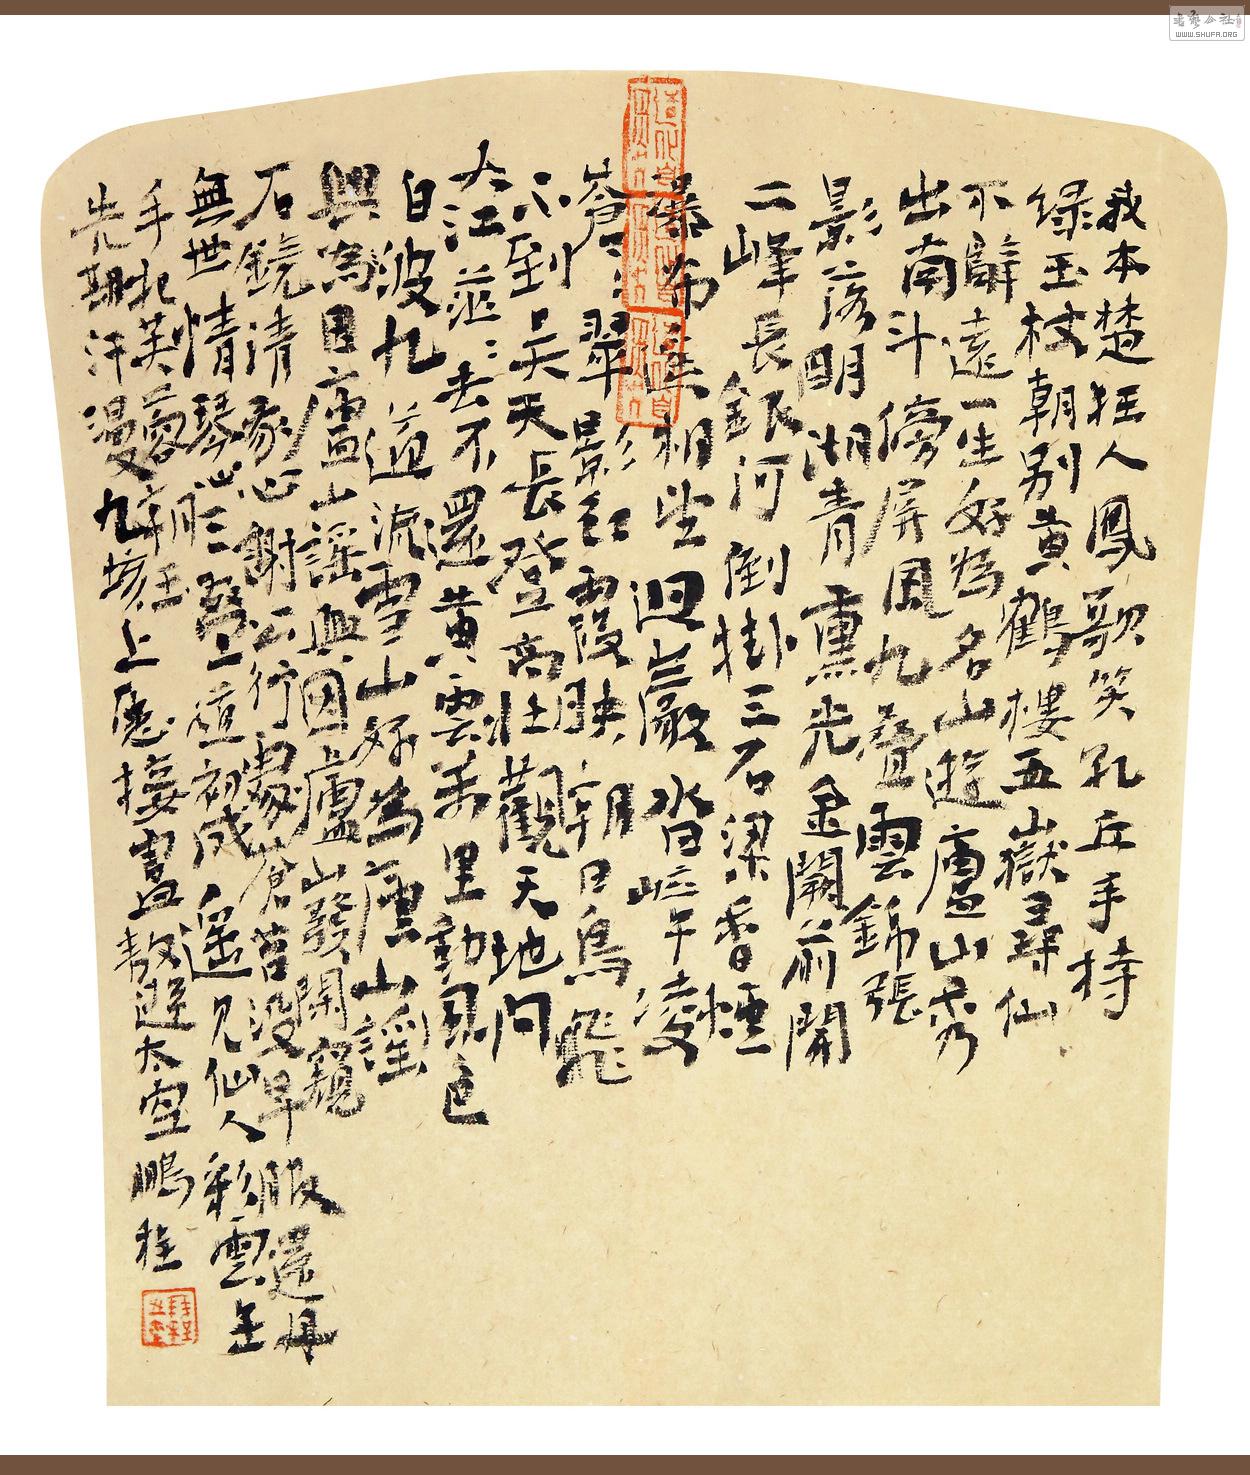 我本楚狂人鳳歌笑孔丘手持
绿玉杖朝别黄鶴樓五嶽尋仙
不辭遠一生好為名山遊廬山秀
出南斗傍屏風九疊雲錦張
影落明湖青熏光金闕前開
二峰長銀河倒掛三石梁香煙
瀑布 相望迴巖 沓嶂 凌
蒼蒼翠影紅霞映朝日鳥飛
不到吴天長登高壯觀天地间
大江茫茫去不還黄雲萬里動風色
白波九道流雪山好為廬山謡
興為因廬山謡興因廬山發閑窺
石鏡清我心謝公行處蒼苔没早服還丹
無世情琴心三疊道初成遥見仙人彩雲里
手把芙蓉朝玉
先期汗漫九垓上願接盧敖遊太空鵬程
WWW.SHUFA.ORG